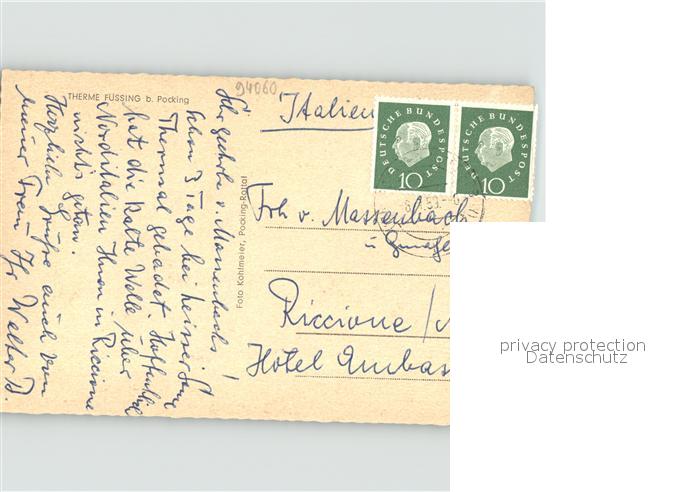 94060
THERME FÜSSING b. Pocking
Sehr geehrte v. Massenbachs!
Schon 3 Tage bei heisser
Thermal gebadet. Hoffentlich
hat die kalte Welle über
Norditalien Ihnen in Riccione
nichts getan.
Herzliche Grüße auch von
meiner Frau Ihr Walter D.
Foto Kohlmeier, Pocking-Rottal
Italien
DEUTSCHE BUNDESPOST
10
DEUTSCHE BUNDESPOST
10
Frh v. Massenbach
u.
Riccione/
Hotel Embas
privacy protection
Datenschutz